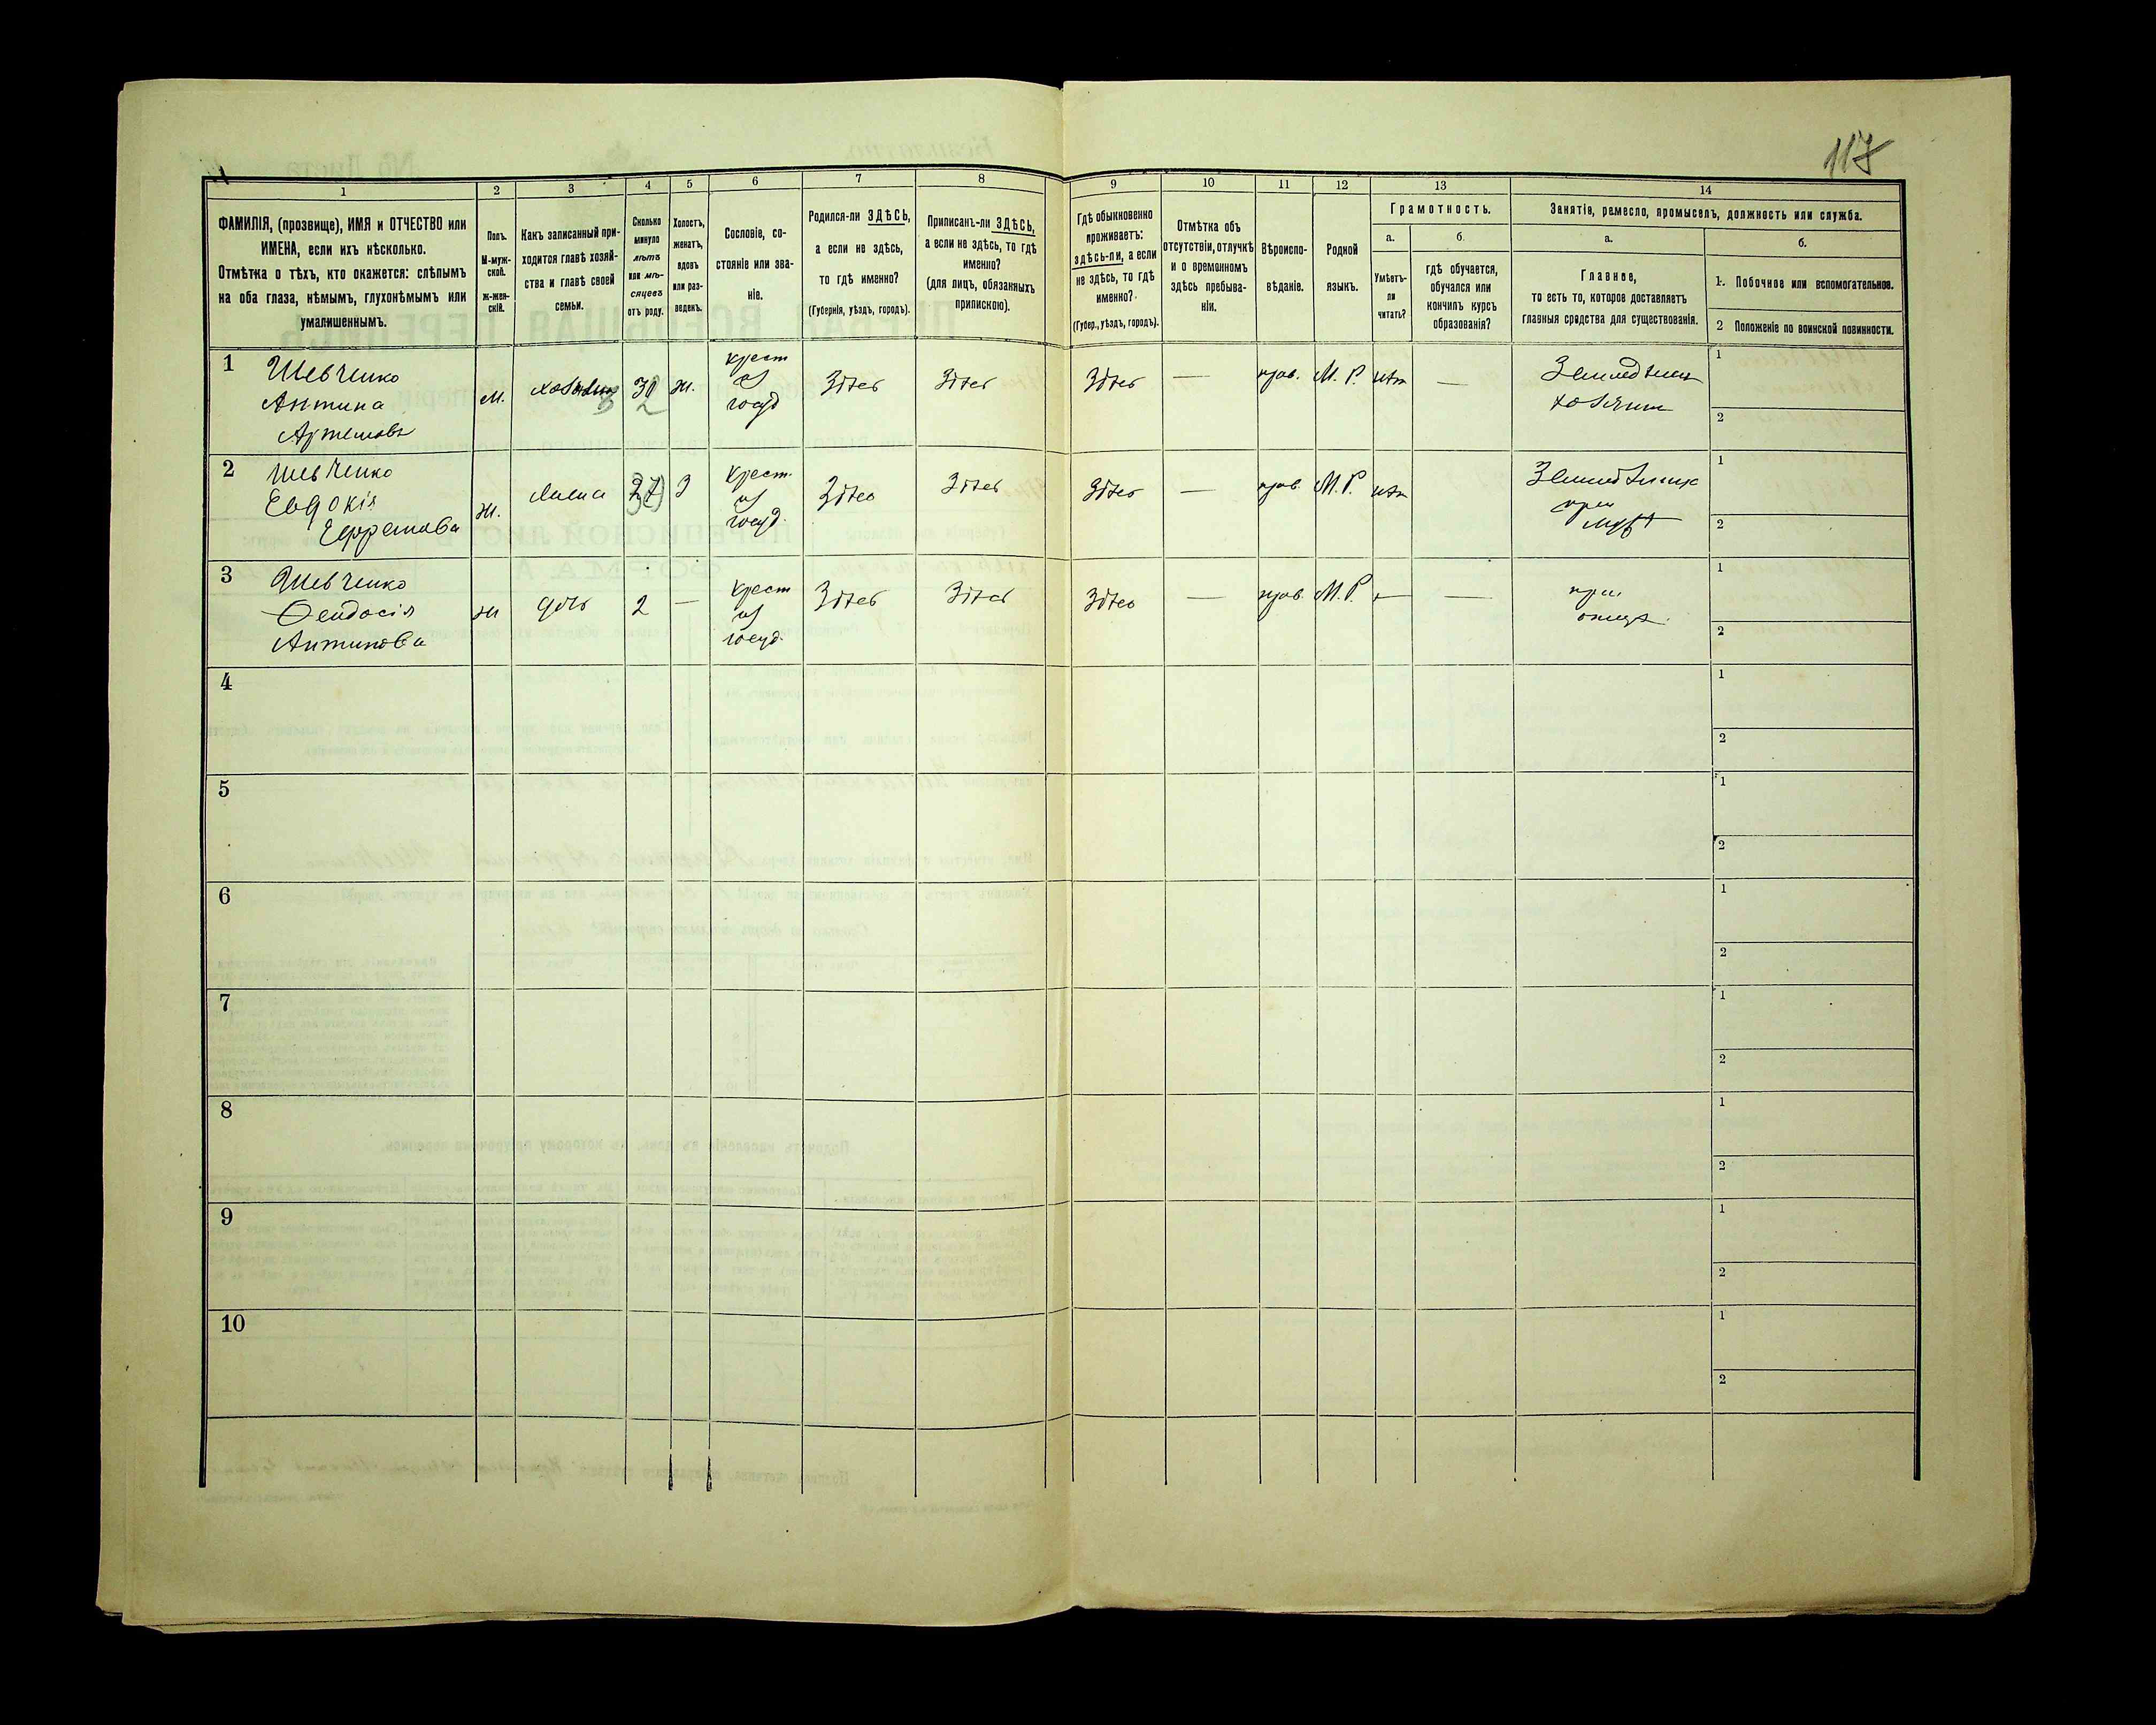 117
1 2 3 4 5 6 7 8 9 10 11 12 13 14
ФАМИЛІЯ, (прозвище), ИМЯ и ОТЧЕСТВО или
ИМЕНА, если ихъ нѣсколько.
Отмѣтка о тѣхъ, кто окажется: слѣпымъ
на оба глаза, нѣмымъ, глухонѣмымъ или
умалишеннымъ.
Полъ.
М-муж-
ской.
ж-жен-
скій.
Какъ записанный при-
ходится главѣ хозяй-
ства и главѣ своей
семьи.
Сколько
минуло
лѣтъ
или мѣ-
сяцевъ
отъ роду.
Холостъ,
женатъ,
вдовъ
или раз-
веденъ.
Сословіе, со-
стояніе или зва-
ніе.
Родился-ли ЗДѢСЬ,
а если не здѣсь,
то гдѣ именно?
(Губернія, уѣздъ, городъ).
Приписанъ-ли ЗДѢСЬ,
а если не здѣсь, то гдѣ
именно?
(для лицъ, обязанныхъ
припискою).
Гдѣ обыкновенно
проживаетъ:
здѣсь-ли, а если
не здѣсь, то гдѣ
именно?
(Губер., уѣздъ, городъ).
Отмѣтка объ
отсутствіи, отлучкѣ
и о временномъ
здѣсь пребыва-
ніи.
Вѣроиспо-
вѣданіе.
Родной
языкъ.
Грамотность.
а.
Умѣетъ-
ли
читать?
б.
гдѣ обучается,
обучался или
кончилъ курсъ
образованія?
Занятіе, ремесло, промыселъ, должность или служба.
а.
Главное,
то есть то, которое доставляетъ
главныя средства для существованія.
б.
1. Побочное или вспомогательное.
2 Положеніе по воинской повинности.
1
Шевченко
Антипа
Артемовъ
м. хозяинъ ж.
крест
из
госуд
Здѣсь Здѣсь Здѣсь — прав. М. Р. нѣт —
Земледѣлец
хозяин
1
2
2
Шевченко
Евдокія
Ефремова
ж. жена з
крест.
из
госуд.
Здѣсь Здѣсь Здѣсь — прав. М. Р. нѣт —
при
мужѣ
1
2
3
Шевченко
Феодосія
Антипова
ж дочь 2 —
крест
из
госуд.
Здѣсь Здѣсь Здѣсь — прав. М. Р. — —
при
отцѣ
1
2
4
1
2
5
1
2
6
1
2
7
1
2
8
1
2
9
1
2
10
1
2